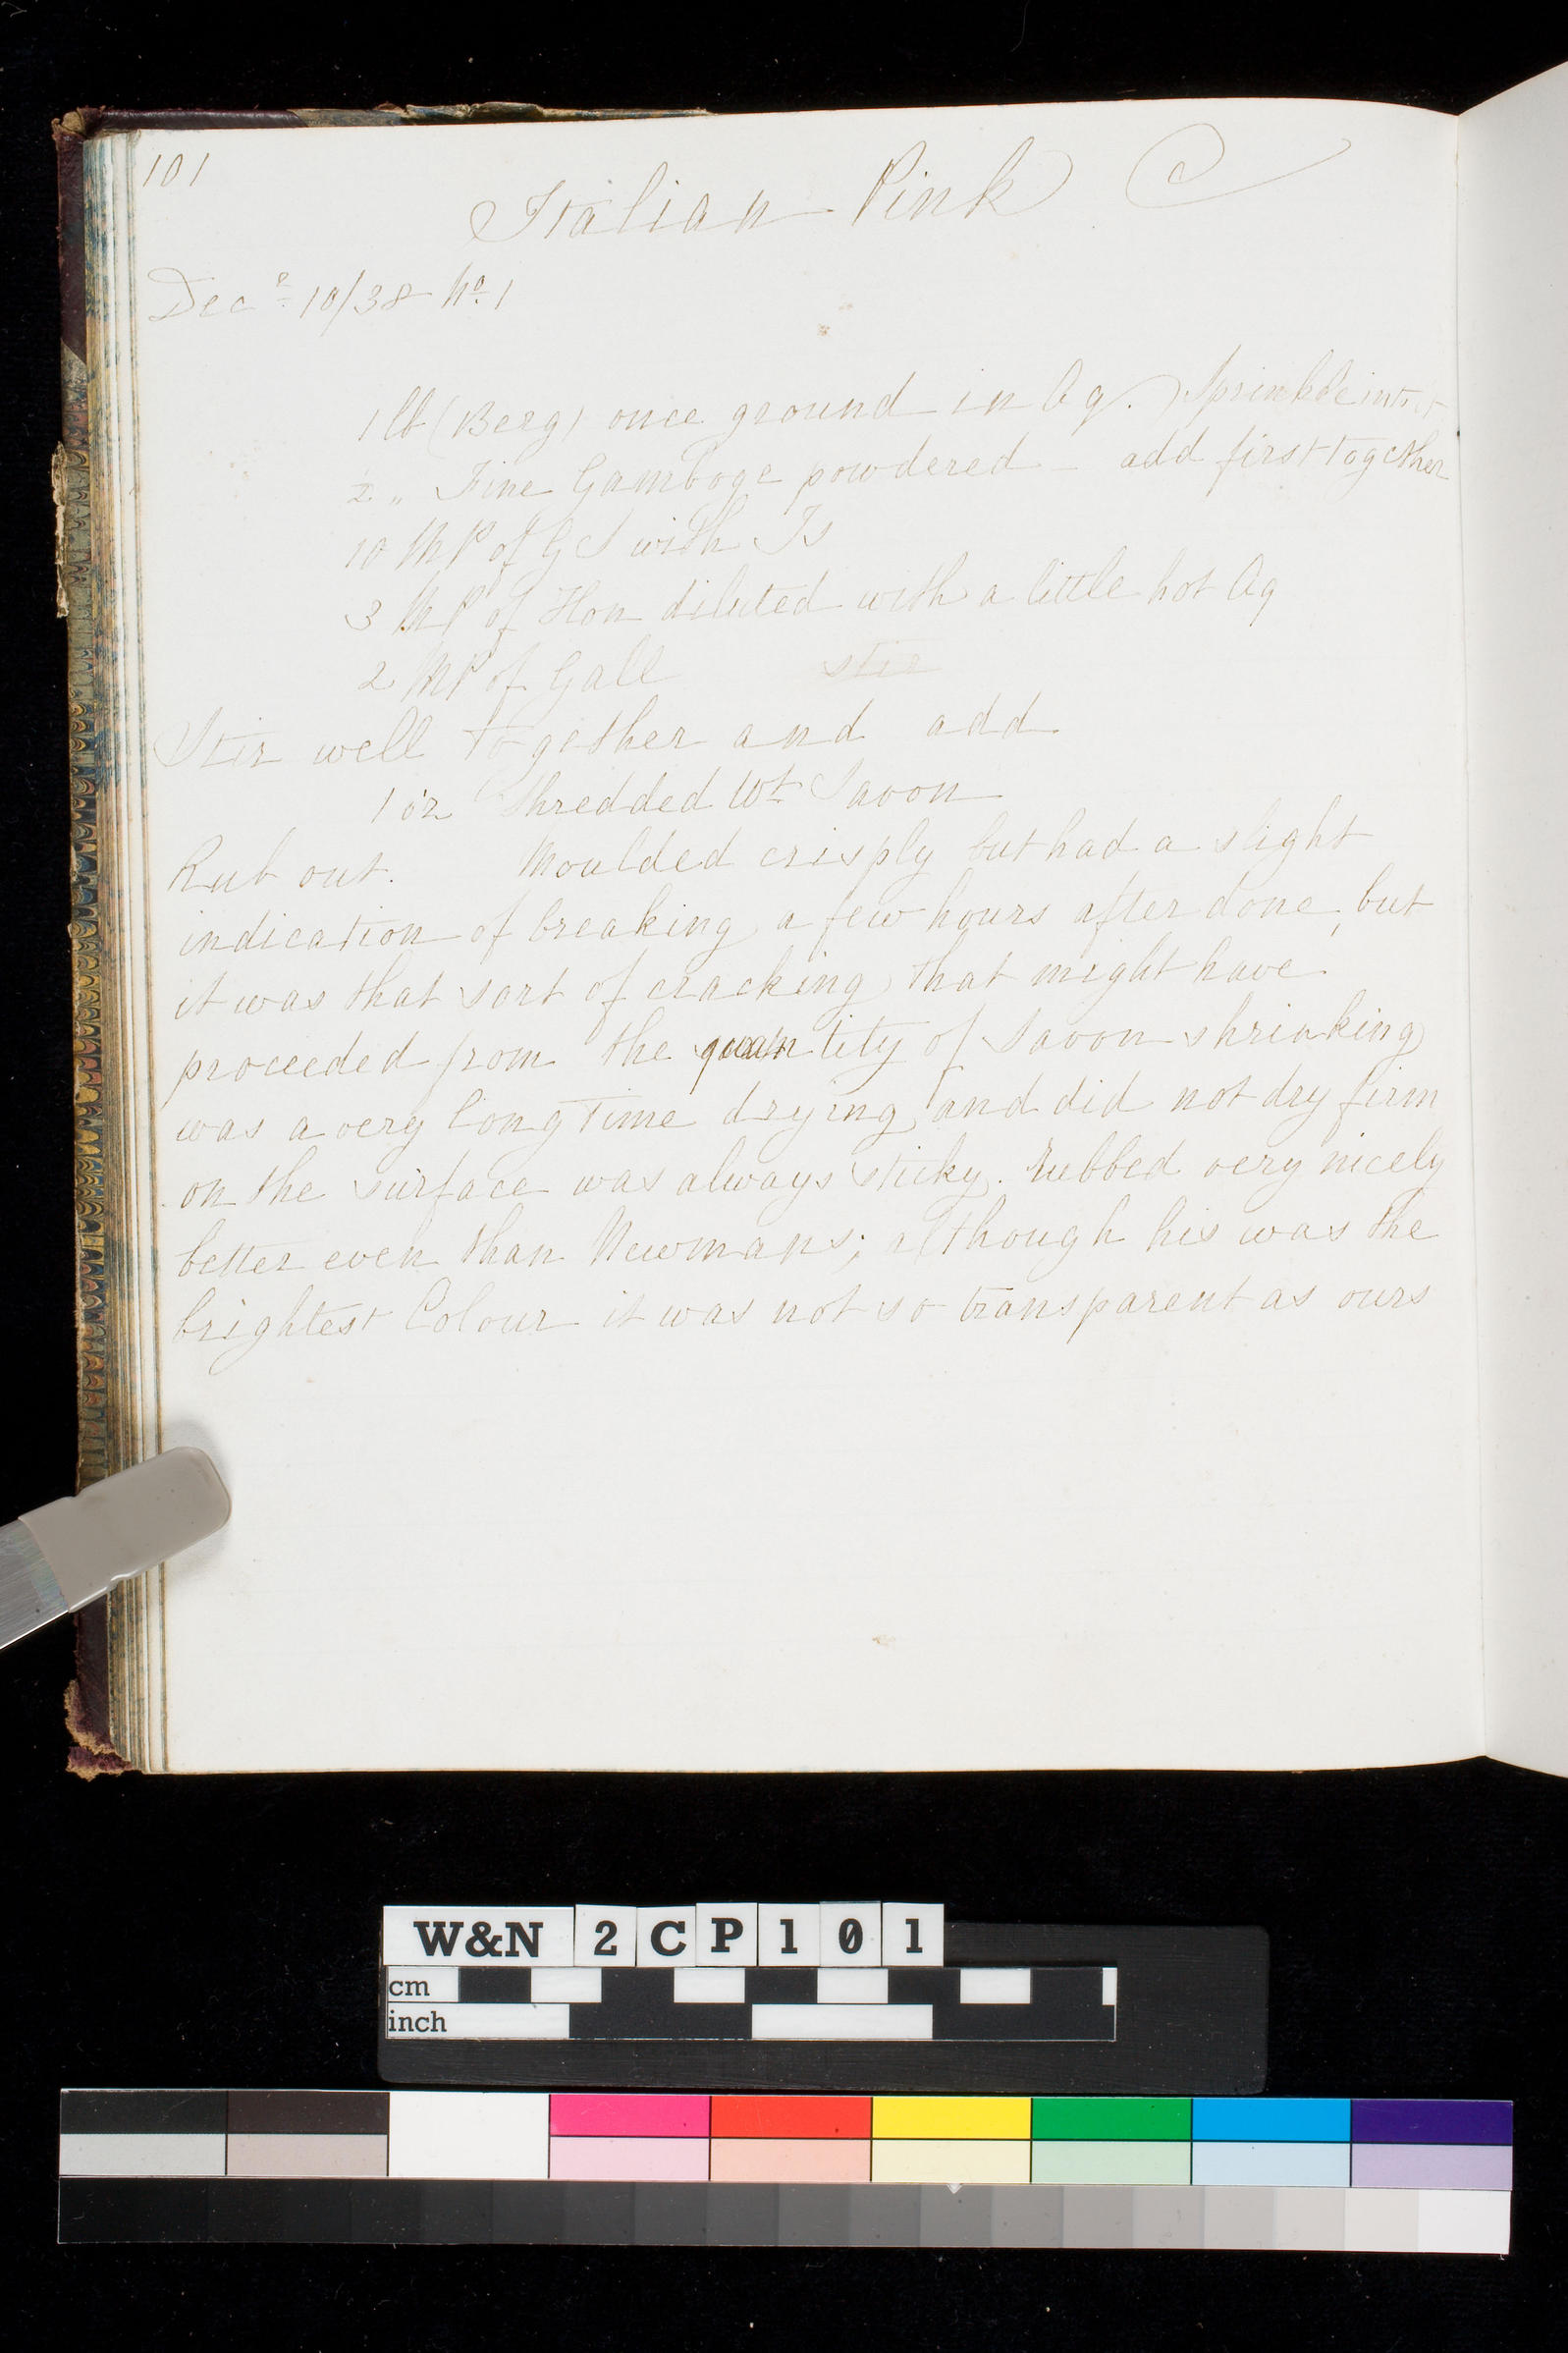 101
Italian Pink
Decr 10/38 No. 1
1 lb (Berg) once ground in Aq.) Sprinkle into it
2 „ Fine Gamboge powdered - add first together
10 MP of GS with Is
3 MP of Hon diluted with a little hot Aq
2 MP of Gall stir
Stir well together and add
1 oz Shredded Wt Savon
Rub out. Moulded crisply but had a slight
indication of breaking a few hours after done, but
it was that sort of cracking that might have
proceeded from the quantity of Savon shrinking
was a very long time drying and did not dry firm
on the surface was always sticky. Rubbed very nicely
better even than Newmans; although his was the
brightest Colour it was not so transparent as ours
W&N 2CP101
cm
inch